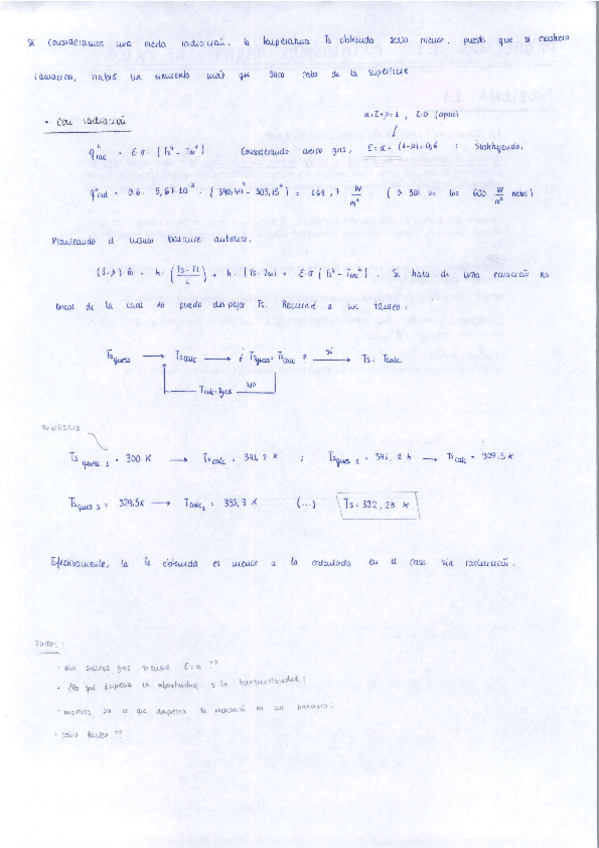 Si consideramos una cierta radiación, la temperatura Ts obtenida sería menor, puesto que si existiera
radiación, habrá un elemento más que saca calor de la superficie
- Con radiación
α+τ+ρ=1 , τ=0 (opaco)
q''rad = ε·σ·[Ts⁴ - T∞⁴]. Considerando cuerpo gris, ε=α = (1-ρ)=0,6 : Sustituyendo.
q''rad = 0.6 · 5,67·10⁻⁸ · (340,44⁴ - 303,15⁴) = 169,7 W/m² (≈ 30% de los 600 W/m² netos)
Planteando el mismo balance anterior.
(1-ρ) G = k · (Ts-Ti / L) + h · [Ts - T∞] + ε·σ [Ts⁴ - T∞⁴]. Se trata de una ecuación no
lineal de la cual no puedo despejar Ts. Recurriré a un tanteo:
Ts guess → Ts calc → ¿ Tguess = Tscalc ? — sí → Ts = Tcalc
Tcalc = Tguess — NO
Ts guess 1 = 300 K → Ts calc = 341,2 K ; Ts guess 2 = 341,2 K → Ts calc = 329,5 K
Ts guess 3 = 329,5 K → Tcalc = 333,3 K (...) Ts = 332,28 K
Efectivamente, la Ts obtenida es menor a la calculada en el caso sin radiación.
Dudas:
ε=α ??
- ¿Por qué desprecia la absortividad o la transmisividad?
por lo que desprecia la radiación en un principio?
- cómo tanteo ??